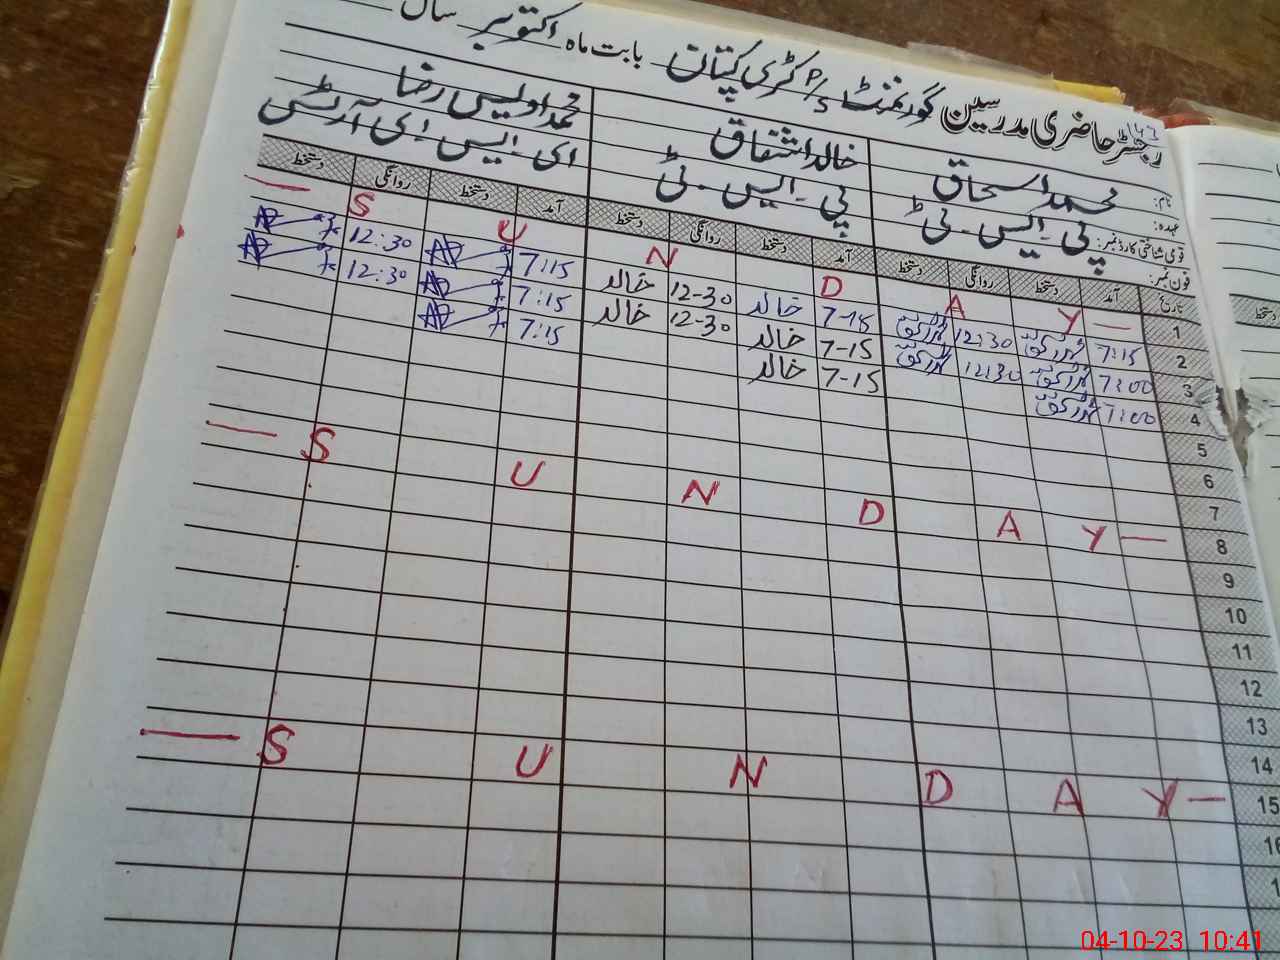 رجسٹر حاضری مدرسین گورنمنٹ P/S کڑی کپتان بابت ماہ اکتوبر سال
نام: محمد اسحاق خالد اشتقاق محمد اویس رضا
عہدہ: پی ۔ ایس ۔ ٹی پی ۔ ایس ۔ ٹی ای ۔ ایس ۔ ای آرٹس
قومی شناختی کارڈ نمبر:
فون نمبر:
تاریخ آمد دستخط روانگی دستخط آمد دستخط روانگی دستخط آمد دستخط روانگی دستخط
1 — S U N D A Y —
2 7:15 12:30 7-15 خالد 12-30 خالد 7:15 12:30
3 7:00 12:30 7-15 خالد 12-30 خالد 7:15 12:30
4 7:00 7-15 خالد 7:15
5
6
7
8 — S U N D A Y —
9
10
11
12
13
14
15 — S U N D A Y —
04-10-23 10:41